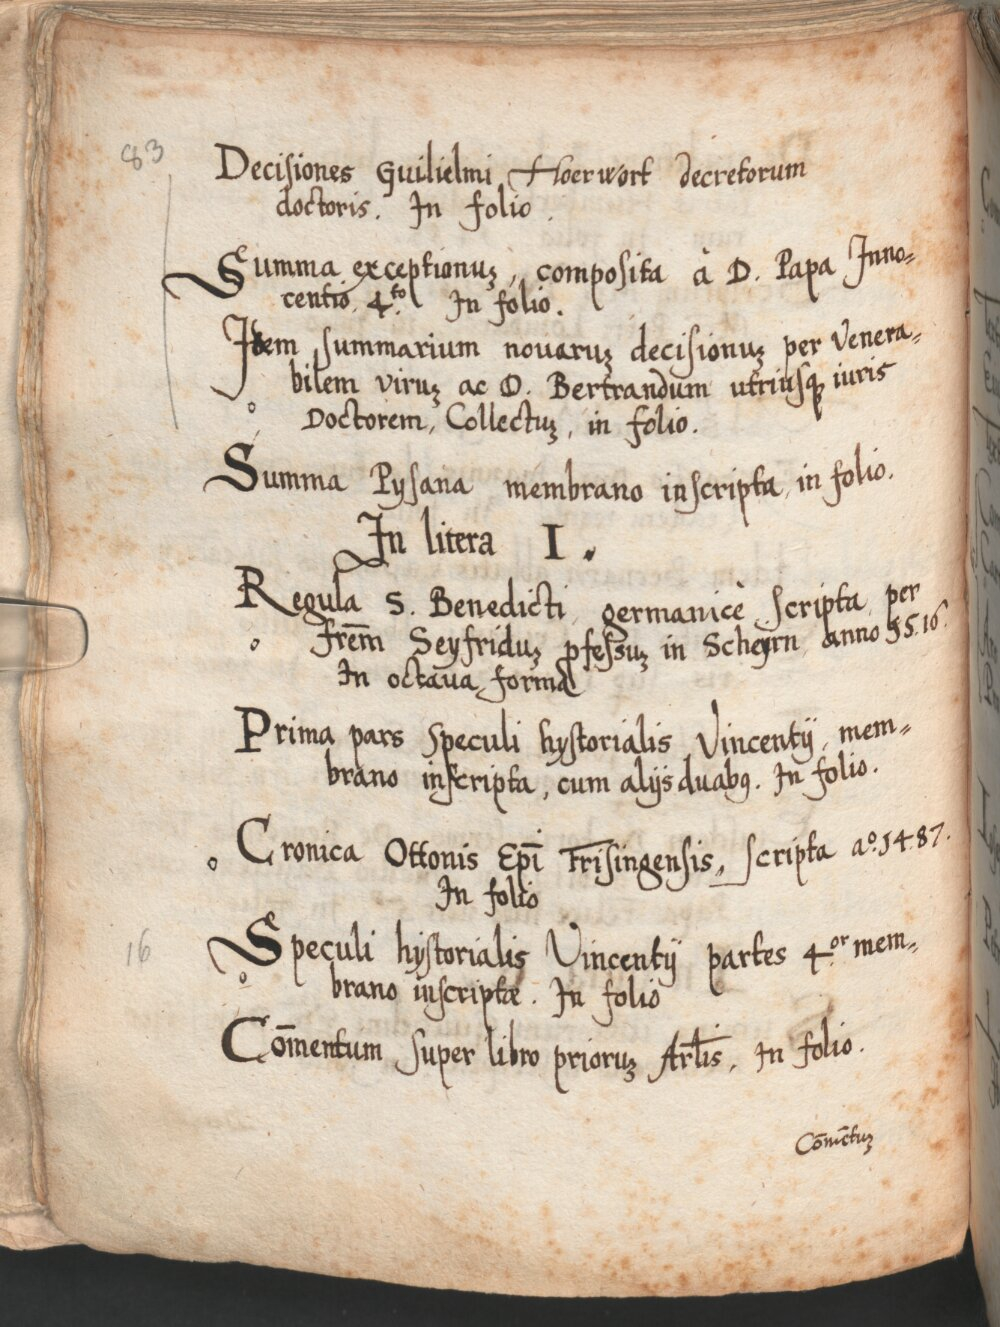 83
Decisiones Guilielmi Hoerwort decretorum
doctoris. In folio.
Summa exceptionuʒ, composita à D. Papa Inno=
centio, 4.to In folio.
Item summarium novaruʒ decisionuʒ per Venera=
bilem viruʒ ac D. Bertrandum utriusqꝫ iuris
Doctorem, Collectuʒ, in folio.
Summa Pysana membrano inscripta, in folio.
In litera I.
Regula S. Benedicti germanicè scripta per
frēm Seyfriduʒ ꝓfessuʒ in Scheyrn anno 1516.
In octaua forma
Prima pars Speculi hystorialis Vincentij, mem=
brano inscripta, cum alijs duabꝰ. In folio.
Cronica Ottonis Epī Frisingensis, scripta ao. 1487.
In folio
16
Speculi hystorialis Vincentij partes 4.or mem=
brano inscriptæ. In folio
Com̄entum super libro prioruʒ Artl̄is, In folio.
Com̄ētuʒ